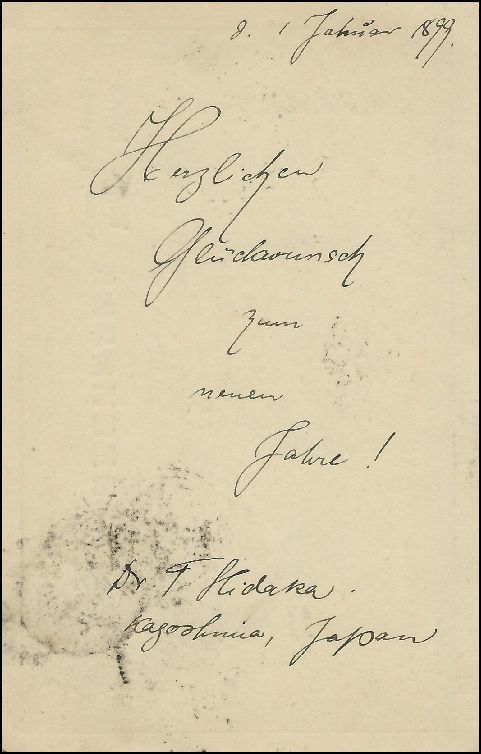 d. 1 Januar 1899.
Herzlichen
Glückwunsch
zum
neuen
Jahre !
Dr T Hidaka.
Kagoshima, Japan